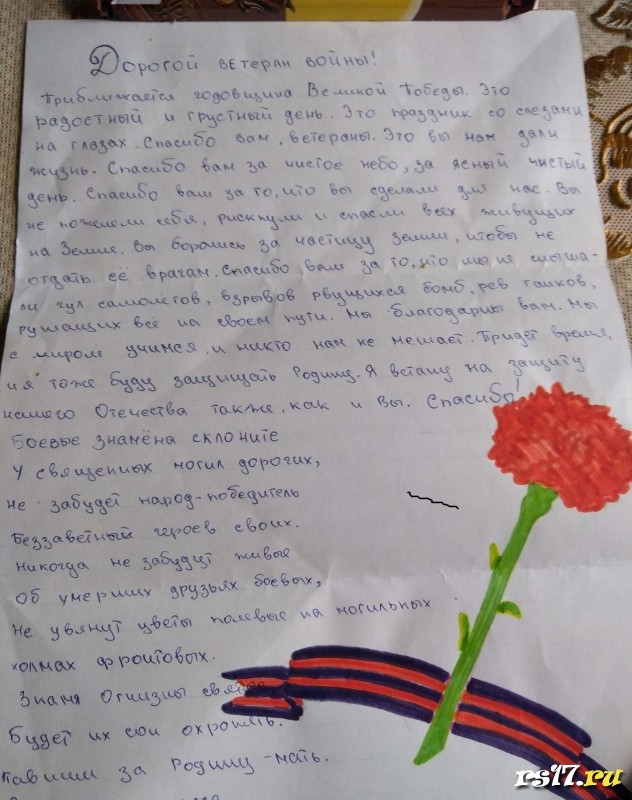 Дорогой ветеран войны!
Приближается годовщина Великой Победы. Это
радостный и грустный день. Это праздник со слезами
на глазах. Спасибо вам, ветераны. Это вы нам дали
жизнь. Спасибо вам за чистое небо, за ясный чистый
день. Спасибо вам за то, что вы сделали для нас. Вы
не пожелели себя, рискнули и спасли всех живущих
на Земле. Вы боролись за частицу земли, чтобы не
отдать её врагам. Спасибо вам за то, что мы не слыша-
ли гул самолётов, взрывов рвущихся бомб, рев танков,
рушащих всё на своем пути. Мы благодарны вам. Мы
с миром учимся, и никто нам не мешает. Придет время,
и я тоже буду защищать Родину. Я встану на защиту
нашего Отечества также, как и Вы. Спасибо!
Боевые знамёна склоните
У священных могил дорогих,
Не забудет народ-победитель
Беззаветный героев своих.
Никогда не забудут живые
Об умерших друзьях боевых,
Не увянут цветы полевые на могильных
холмах фронтовых.
Знамя Отчизны свято
Будет их сон охранять.
Павших за Родину-мать.
rs17.ru